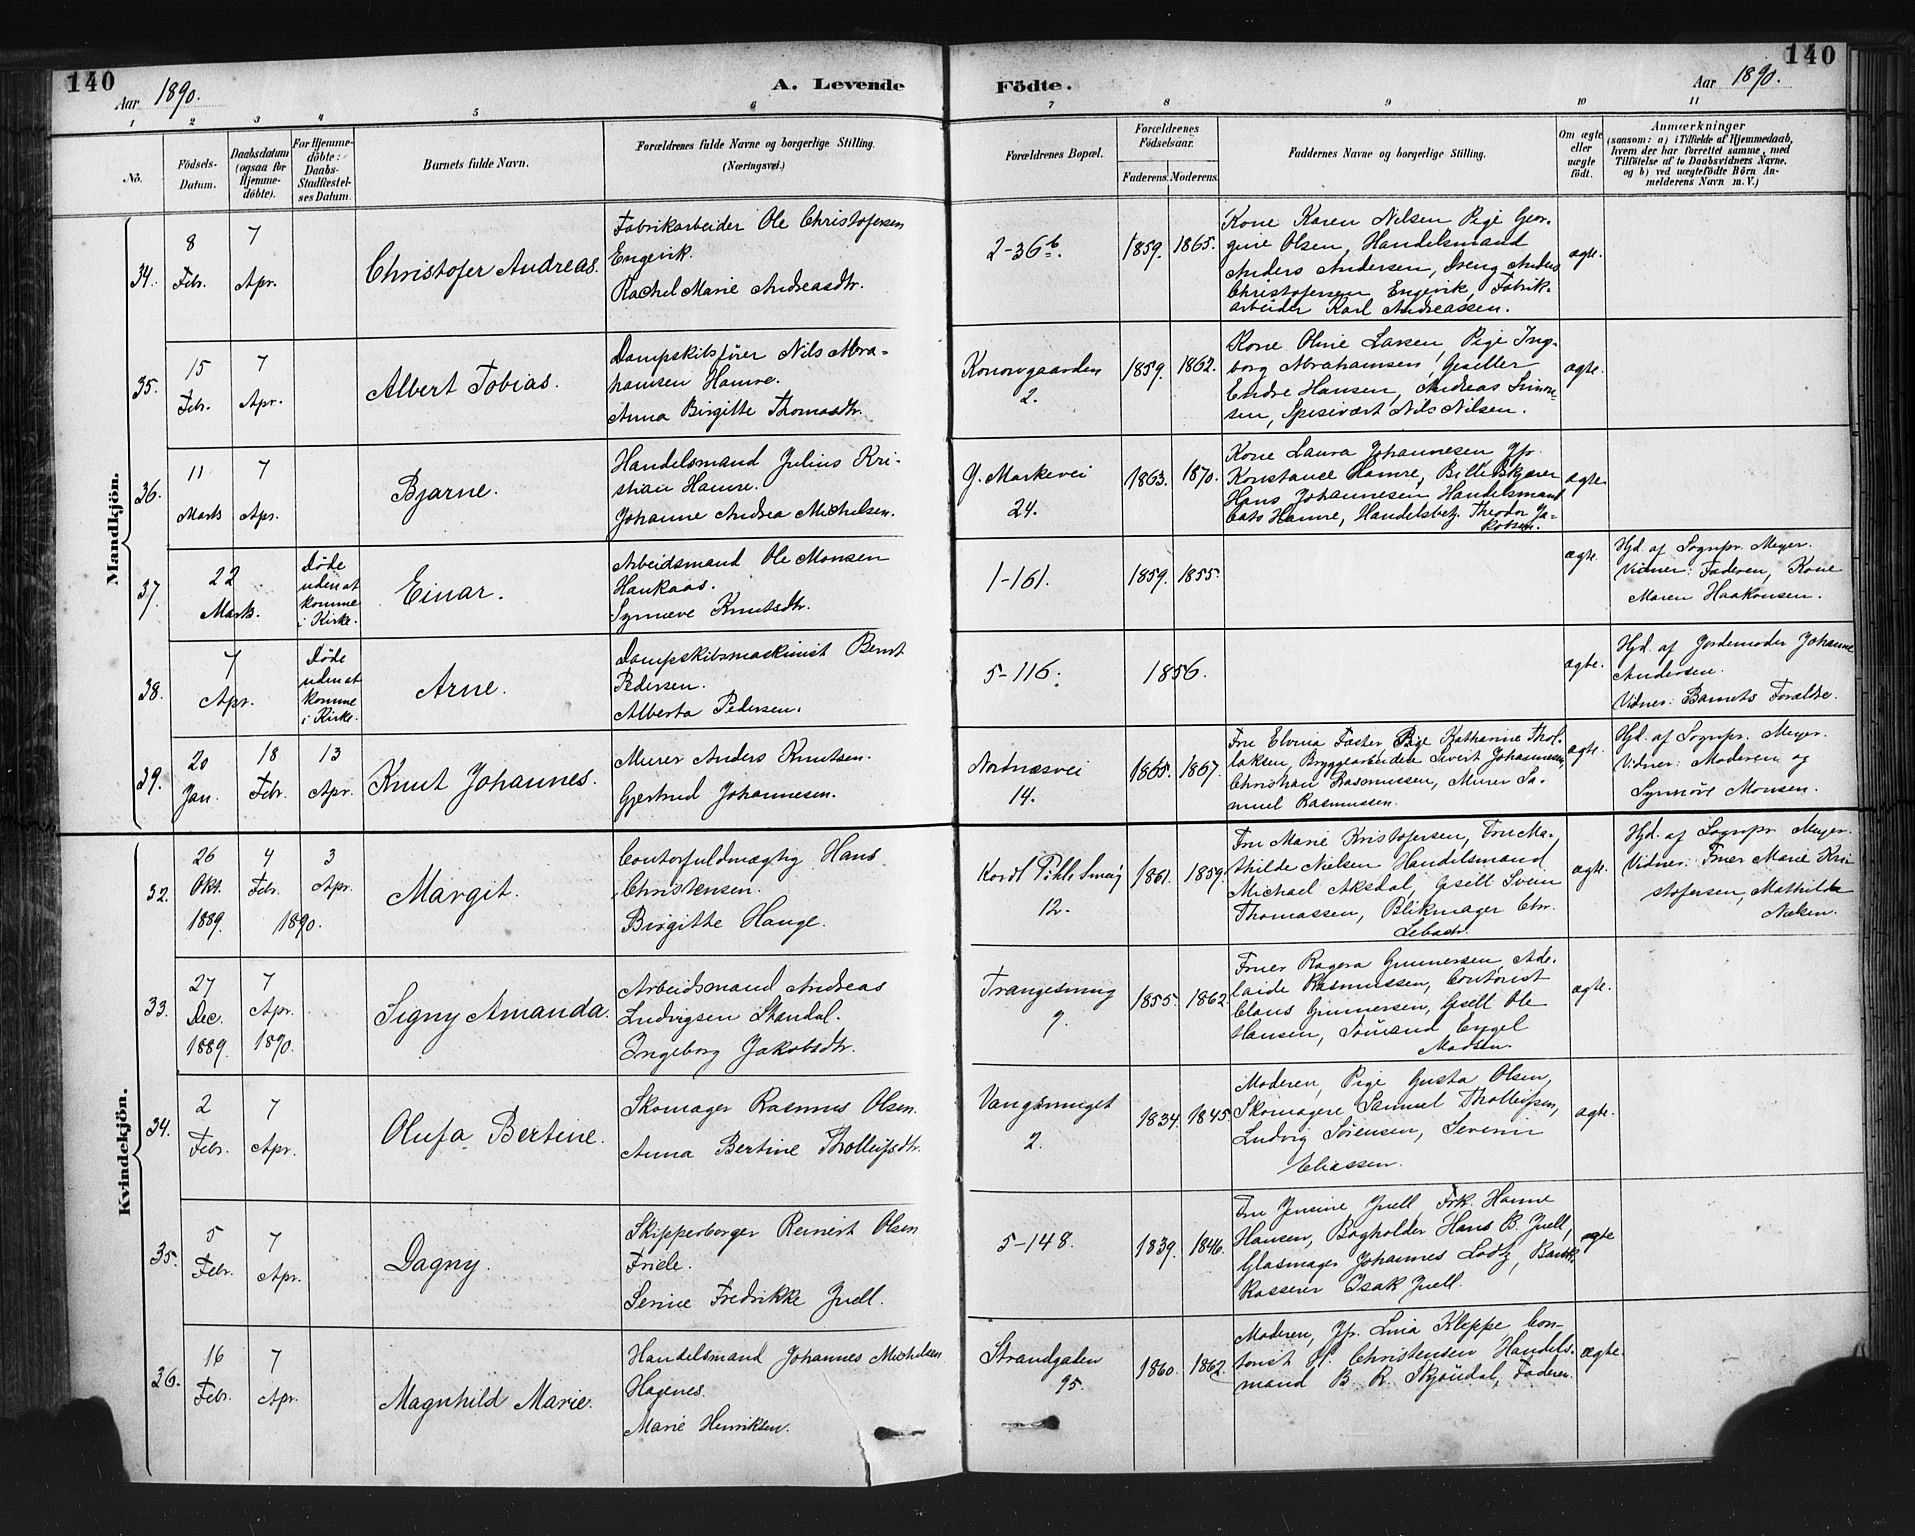 140
Aar 1890.
A. Levende Födte.
Aar 1890.
140
1 2 3 4 5 6 7 8 9 10 11
No.
Födsels-Datum.
Daabsdatum (ogsaa for Hjemmedöbte).
For Hjemmedöbte: Daabs-Stadfæstelses Datum.
Barnets fulde Navn.
Forældrenes fulde Navne og borgerlige Stilling. (Næringsvei.)
Forældrenes Bopæl.
Forældrenes Födselsaar.
Faderens. Moderens.
Faddernes Navne og borgerlige Stilling.
Om ægte eller uægte födt.
Anmærkninger
(saasom: a) i Tilfælde af Hjemmedaab, hvem der har forrettet samme, med Tilföielse af to Daabsvidners Navne, og b) ved uægtefödte Börn Anmelderens Navn m. V.)
Mandkjön.
34. 8 Febr. 7 Apr.
Christofer Andreas.
Fabrikarbeider Ole Christofersen
Engevik.
Rachel Marie Andreasdtr.
2-36b.
1859. 1865.
Kone Karen Nilsen Pige Geor-
gine Olsen, Handelsmand
Anders Andersen, Dreng Anders
Christofersen Engevik, Fabrik-
arbeider Karl Andreassen.
ægte.
35. 15 Febr. 7 Apr.
Albert Tobias.
Dampskibsfører Nils Abra-
hamsen Hamre.
Anna Birgitte Thomasdtr.
Konowgaarden
2.
1859. 1862.
Kone Oline Larsen Pige Ing-
borg Abrahamsen, Geseller
Endre Hansen, Andreas Simon-
sen, Spisevært Nils Nilsen.
ægte.
36. 11 Marts 7 Apr.
Bjarne.
Handelsmand Julius Kri-
stian Hamre.
Johanne Andrea Michelsen.
Y. Markevei
24.
1863. 1870.
Kone Laura Johannesen Jfr.
Konstance Hamre, Billedskjærer
Hans Johannesen Handelsmand
Hamre, Handelsbetj. Theodor Ja-
kobsen.
ægte
37. 22 Marts.
Døde
uden at
komme
i Kirke.
Einar.
Arbeidsmand Ole Monsen
Haukaas.
Synneve Knutsdtr.
1-161.
1859. 1855.
ægte.
Hjd. af Sognpr. Meyer.
Vidner: Faderen, Kone
Maren Haakonsen.
38. 7 Apr.
Døde
uden at
komme
i Kirke.
Arne.
Dampskibsmaskinist Bernt
Pedersen.
Alberta Pedersen.
5-116.
1856.
ægte.
Hjd. af Jordemoder Johanne
Andersen.
Vidner: Barnets Forældre.
39. 20 Jan. 18 Febr. 13 Apr.
Knut Johannes.
Murer Anders Knutsen.
Gjertrud Johannesen.
Nordnæsvei
14.
1865. 1867.
Fru Elvina Faster, Pige Katharine Thol-
laksen, Bryggearbeidere Sivert Johannesen,
Christian Rasmussen, Murer Sa-
muel Rasmussen.
ægte.
Hjd. af Sognpr. Meyer.
Vidner: Moderen og
Synnøve Monsen.
Kvindekjön.
32. 26 Okt. 1889. 4 Febr. 3 Apr. 1890.
Margit.
Contorfuldmægtig Hans
Christensen.
Birgitte Hauge.
Kordt Pihls Smug
12.
1861. 1859.
Fru Marie Kristofersen, Fru Ma-
thilde Nielsen Handelsmand
Michael Aksdal, Gsell Svein
Thomassen, Blikmager Chr.
Lebach.
ægte.
Hjd. af Sognpr. Meyer.
Vidner: Fruer Marie Kri-
stofersen, Mathilde
Nielsen.
33. 27 Dec. 1889. 7 Apr. 1890.
Signy Amanda.
Arbeidsmand Andreas
Ludvigsen Standal.
Ingeborg Jakobsdtr.
Trangesmug
9.
1855. 1862.
Fruer Ragna Gunnersen Ade-
laide Rasmussen, Contorist
Claus Gunnersen, Gsell Ole
Hansen, Sømand Engel
Madsen.
ægte.
34. 2 Febr. 7 Apr.
Olufa Bertine.
Skomager Rasmus Olsen.
Anna Bertine Tholleifsdtr.
Vangsmuget
2.
1834. 1845.
Moderen, Pige Gusta Olsen,
Skomagere Samuel Tholleifsen,
Ludvig Sørensen, Severin
Eliassen.
ægte.
35. 5 Febr. 7 Apr.
Dagny.
Skipperborger Reinert Olsen
Friele.
Serine Fredrikke Juell.
5-148.
1839. 1846.
Fru Jensine Juell, Frk. Hanne
Hansen, Bogholder Hans B. Juell,
Glasmager Johannes Lodtz, Bank-
kasserer Isak Juell.
ægte
36. 16 Febr. 7 Apr.
Magnhild Marie.
Handelsmand Johannes Michelsen
Hagenes.
Marie Henriksen.
Strandgaden
95.
1860. 1862.
Moderen, Jfr. Lina Kleppe Con-
torist H. Christensen Handels-
mand B. R. Skjøndal, Faderen.
ægte.